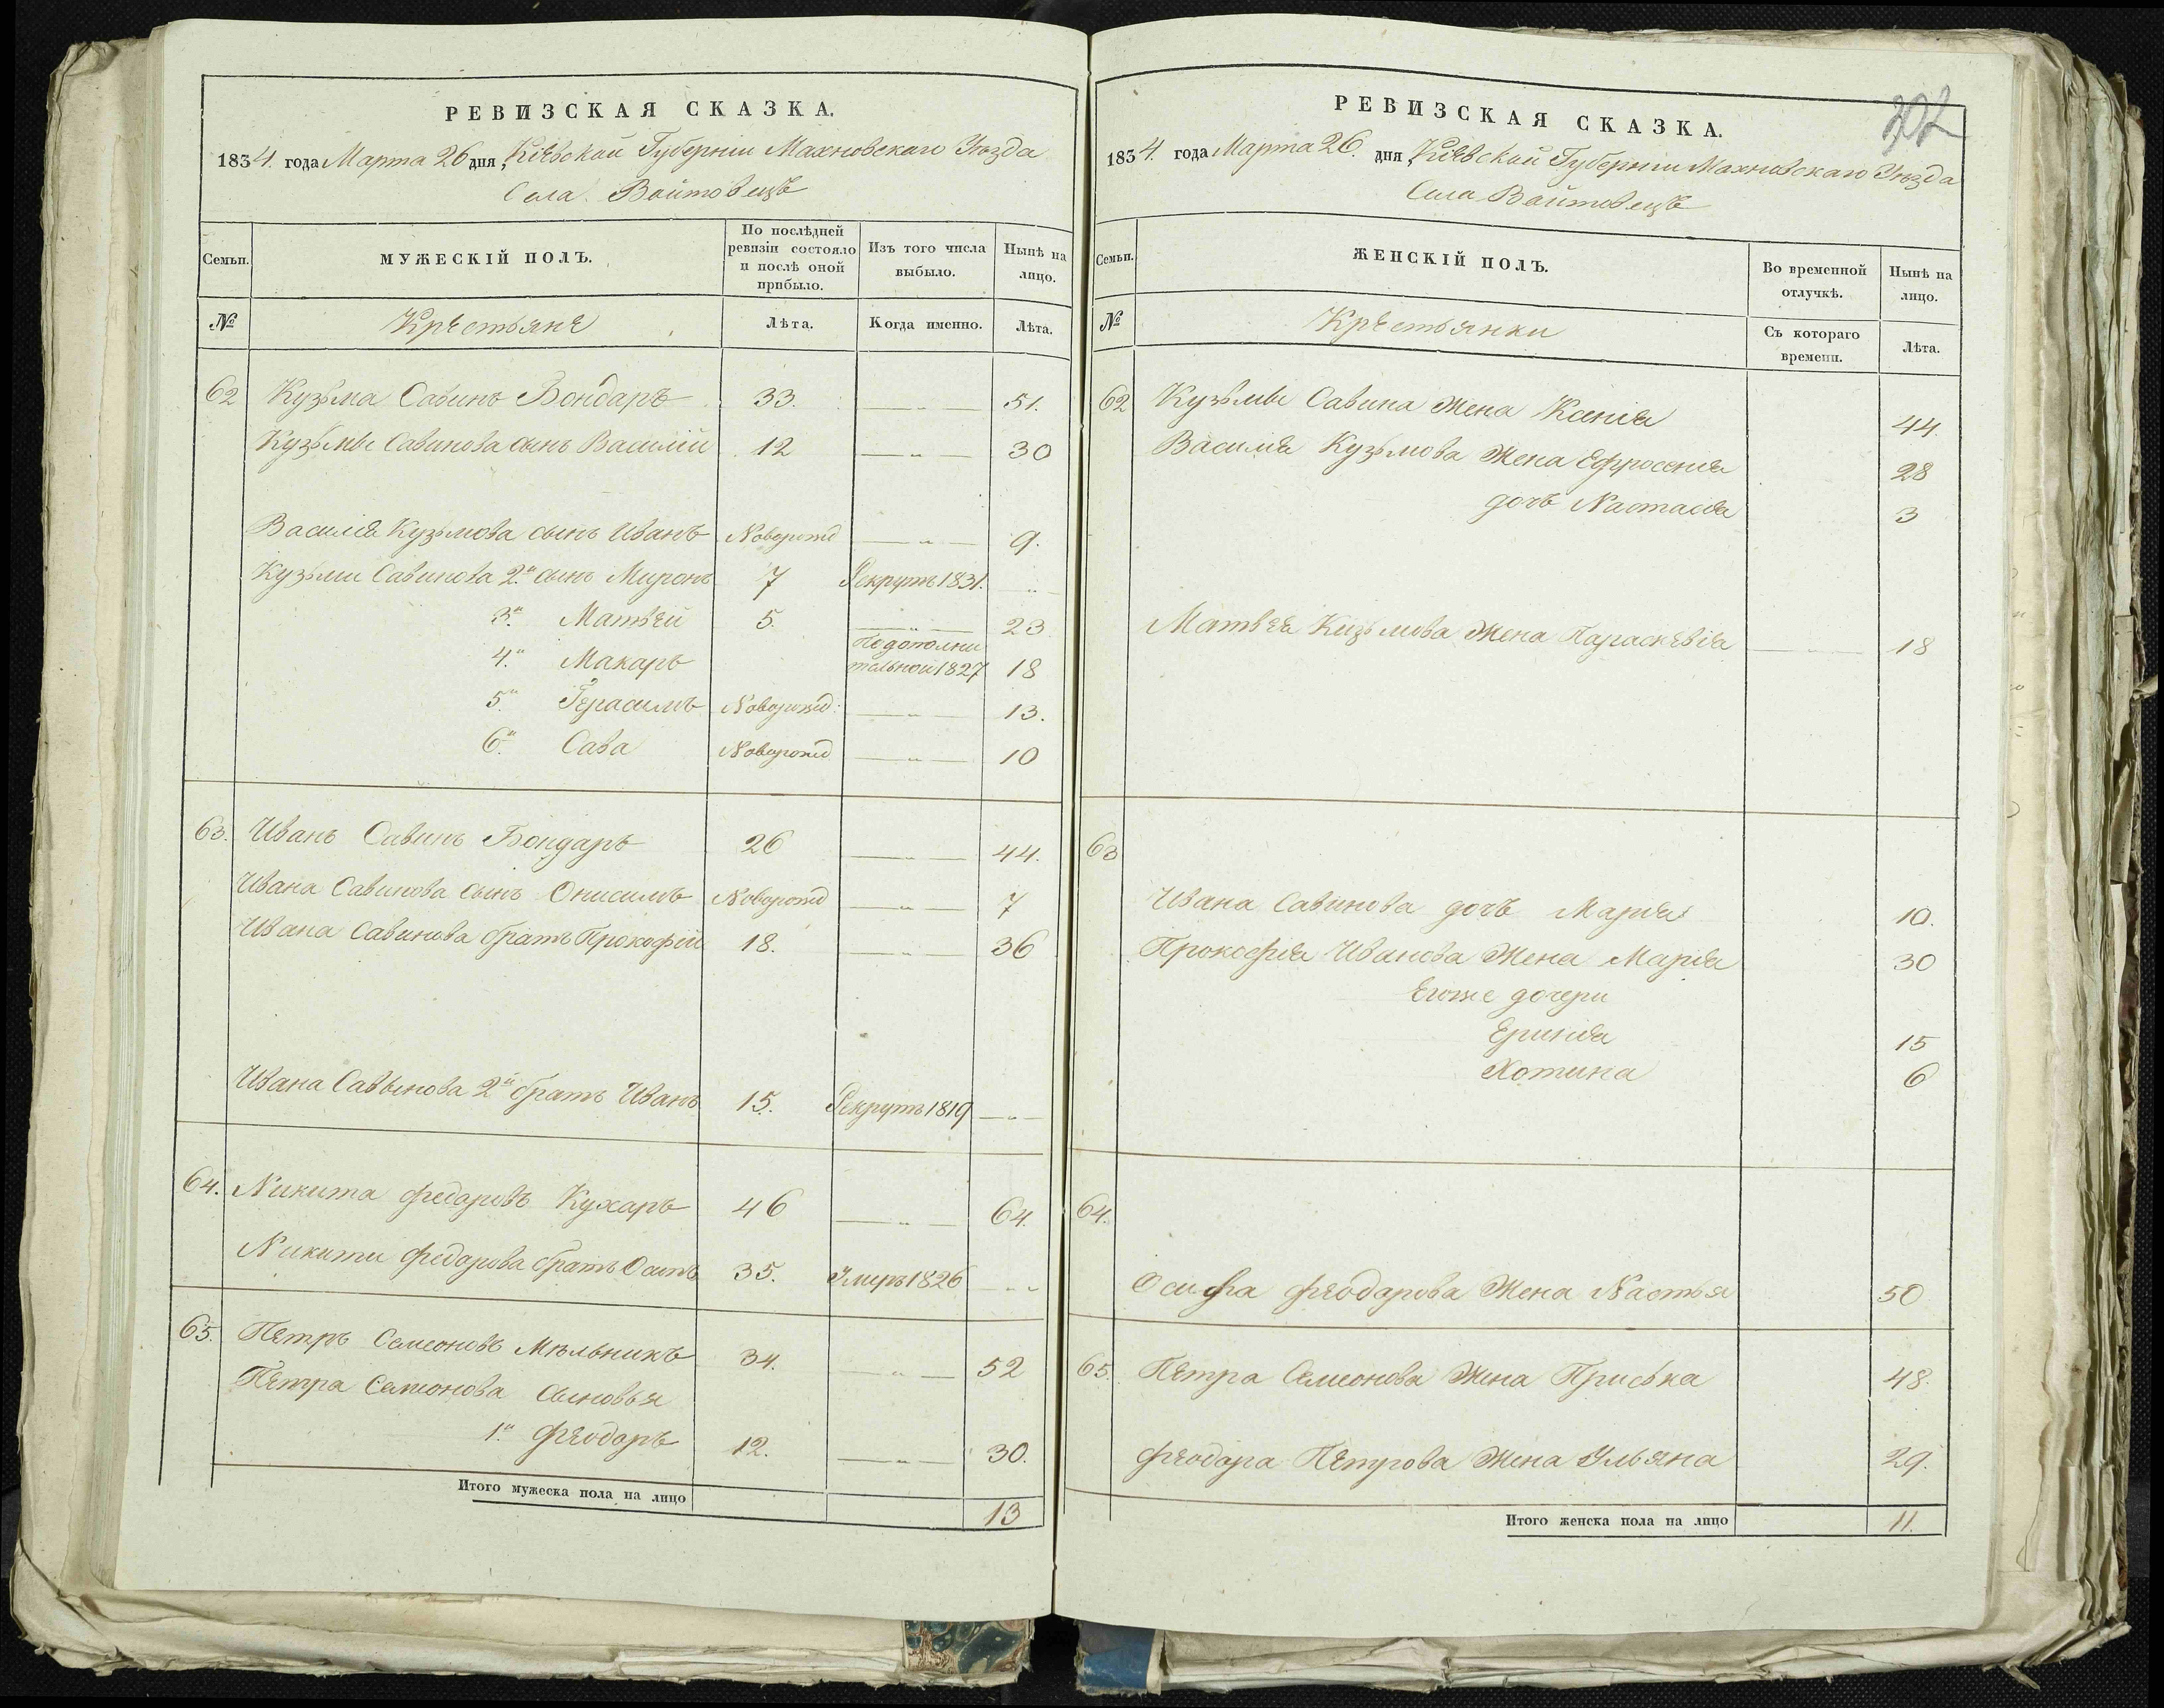 РЕВИЗСКАЯ СКАЗКА.
1834. года Марта 26 дня, Кіевской Губерніи Махновскаго Уѣзда
Села Войтовецъ
Семьи. МУЖЕСКІЙ ПОЛЪ. По послѣдней ревизіи состояло и послѣ оной прибыло. Изъ того числа выбыло. Нынѣ на лицо.
№ Крестьяне Лѣта. Когда именно. Лѣта.
62 Кузьма Савинъ Бондаръ 33. — „ — 51.
Кузьмы Савинова сынъ Василій 12 — „ — 30
Василія Кузьмова сынъ Иванъ Новорожд — „ — 9.
Кузьми Савинова 2й сынъ Миронъ 7 Рекрутъ 1831. „
3й Матвей 5. — „ — 23
4й Макаръ По дополнительной 1827 18
5й Герасимъ Новорожд: — „ — 13.
6й Сава Новорожд — „ — 10
63. Иванъ Савинъ Бондаръ 26 — „ — 44.
Ивана Савинова сынъ Онисимъ Новорожд — „ — 7
Ивана Савинова братъ Прокофій 18. — „ — 36
Ивана Саввинова 2й братъ Иванъ 15. Рекрутъ 1819 — „ —
64. Никита Федоровъ Кухаръ 46 — „ — 64.
Никиты Федорова братъ Осипъ 35. Умеръ 1826 — „ —
65. Петръ Семеоновъ Мѣльникъ 34. — „ — 52
Петра Семионова сыновья
1й Феодоръ 12. — „ — 30.
Итого мужеска пола на лицо 13
302
РЕВИЗСКАЯ СКАЗКА.
1834. года Марта 26. дня, Кіевской Губерніи Махновскаго Уѣзда
Села Войтовецъ
Семьи. ЖЕНСКІЙ ПОЛЪ. Во временной отлучкѣ. Нынѣ на лицо.
№ Крестьянки Съ котораго времени. Лѣта.
62 Кузьмы Савина жена Ксенія 44.
Василія Кузьмова жена Ефросенія 28
дочъ Настасія 3
Матвея Кузьмова жена Параскевія — „ — 18
63
Ивана Савинова дочъ Марія 10.
Прокофія Иванова жена Марія 30
Егоже дочери
Еринія 15
Хотина 6
64.
Осифа Феодорова жена Настья 50
65. Петра Семионова жена Приська 48.
Феодора Петрова жена Ульяна 29.
Итого женска пола на лицо 11.